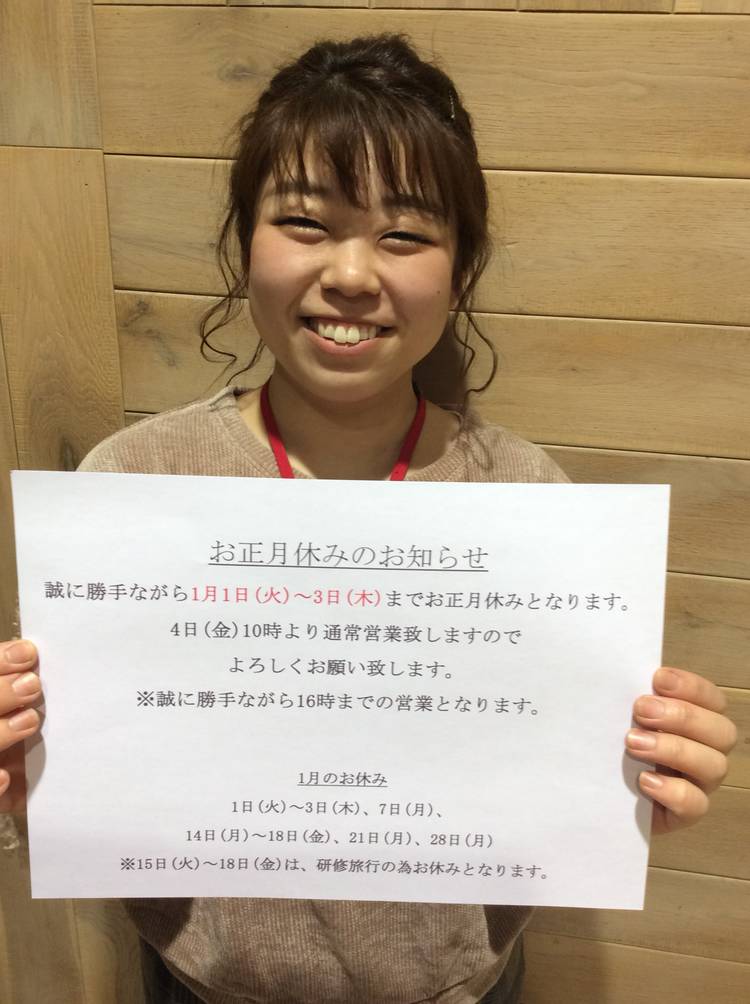 お正月休みのお知らせ
誠に勝手ながら1月1日(火)～3日(木)までお正月休みとなります。
4日(金)10時より通常営業致しますので
よろしくお願い致します。
※誠に勝手ながら16時までの営業となります。
1月のお休み
1日(火)～3日(木)、7日(月)、
14日(月)～18日(金)、21日(月)、28日(月)
※15日(火)～18日(金)は、研修旅行の為お休みとなります。